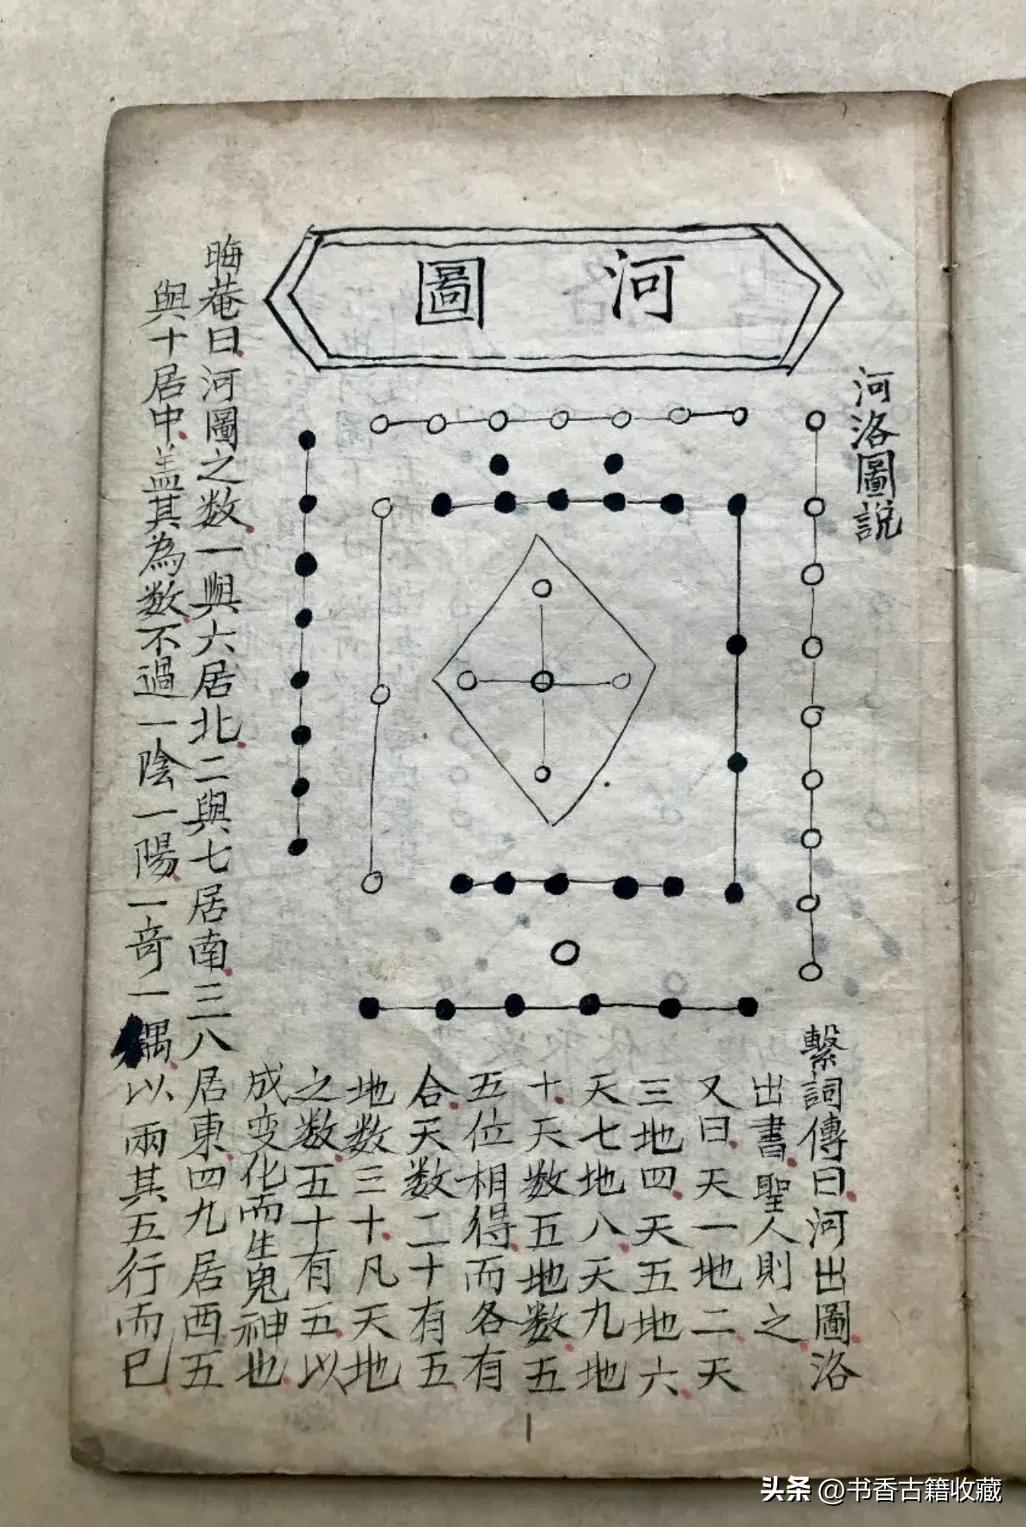 河圖
河洛圖說
繫詞傳曰河出圖洛
出書聖人則之
又曰天一地二天
三地四天五地六
天七地八天九地
十天数五地数五
五位相得而各有
合天数二十有五
地数三十凡天地
之数五十有五以
成变化而生鬼神也
晦菴曰河圖之数一與六居北二與七居南三八居東四九居西五
與十居中盖其為数不過一陰一陽一竒一偶以兩其五行而已
头条 @书香古籍收藏